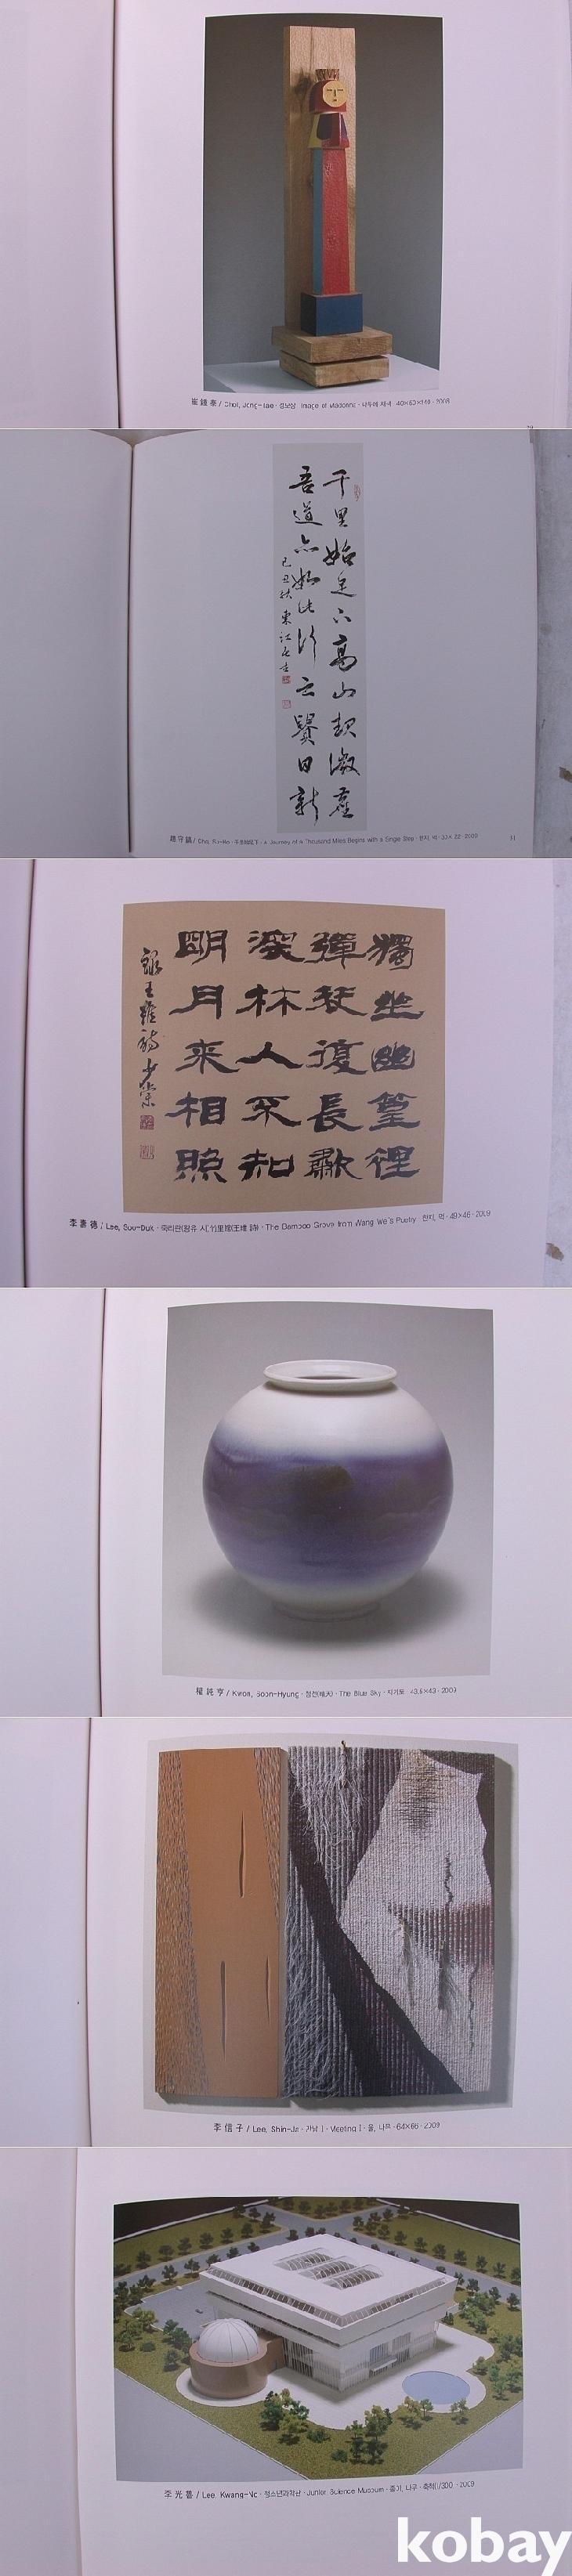 崔鍾泰 / Choi, Jong-Tae · 성모상 Image of Madonna · 나무에 채색 · 2009
千里始足下高山起微塵
吾道亦如此行之貴日新
己丑秋 東江
趙守鎬 / Cho, Soo-Ho · A Journey of a Thousand Miles Begins with a Single Step · 한지, 먹 · 2009
11
獨坐幽篁裡
彈琴復長歌
深林人不知
明月來相照
錄王維詩 少棠
李壽德 / Lee, Soo-Duk · 죽리관(왕유 시)竹里館(王維 詩) · The Bamboo Grove from Wang Wei's Poetry · 한지, 먹 · 49×46 · 2009
權純亨 / Kwon, Soon-Hyung · The Blue Sky · 2009
李信子 / Lee, Shin-Ja · 만남 I · Meeting I · 울, 나무 · 64×66 · 2009
李光魯 / Lee, Kwang-No · 청소년과학관 · Junior Science Museum · 종이, 나무 · 축척1/300 · 2009
kobay